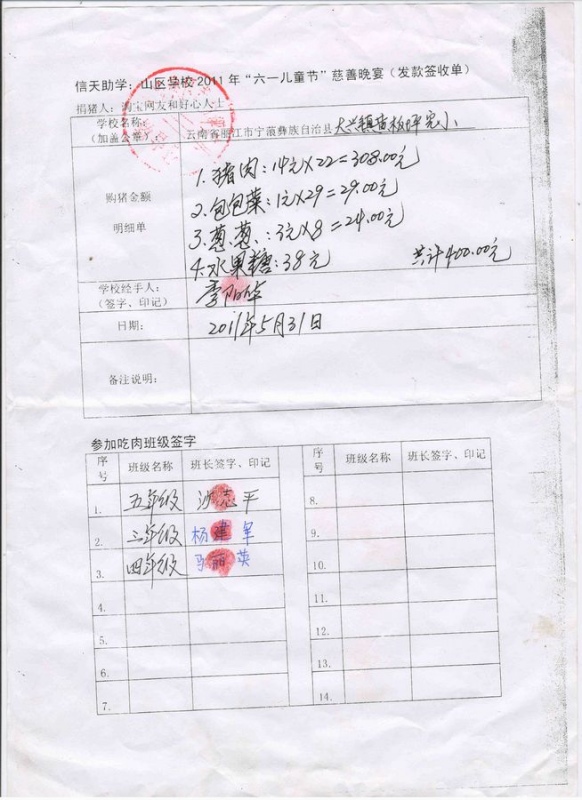 信天助学：山区学校2011年“六一儿童节”慈善晚宴（发款签收单）
捐猪人：淘宝网友和好心人士
学校名称：
（加盖公章）：
云南省丽江市宁蒗彝族自治县大兴镇黄板坪完小
购猪金额
明细单
1.猪肉：14元×22=308.00元
2.包包菜：1元×29=29.00元
3.葱葱：3元×8=24.00元
4.水果糖：38元 共计400.00元
学校经手人：
（签字、印记）
李阳华
日期：
2011年5月31日
备注说明：
参加吃肉班级签字
序号 班级名称 班长签字、印记 序号 班级名称 班长签字、印记
1. 五年级 沙志平 8.
2. 三年级 杨建军 9.
3. 四年级 马丽英 10.
4. 11.
5. 12.
6. 13.
7. 14.